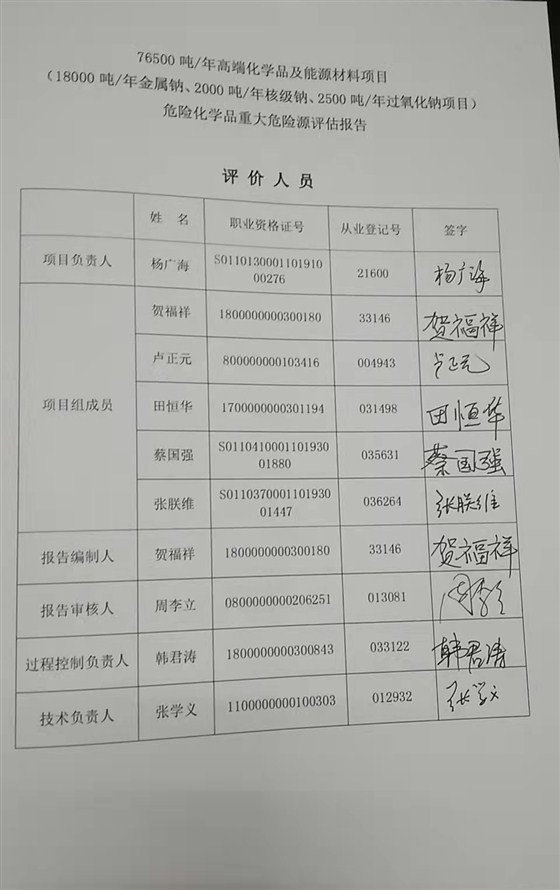 76500 吨/年高端化学品及能源材料项目
（18000 吨/年金属钠、2000 吨/年核级钠、2500 吨/年过氧化钠项目）
危险化学品重大危险源评估报告
评价人员
姓 名 职业资格证号 从业登记号 签字
项目负责人 杨广海 S011013000110191000276 21600 杨广海
项目组成员 贺福祥 1800000000300180 33146 贺福祥
卢正元 800000000103416 004943 卢正元
田恒华 1700000000301194 031498 田恒华
蔡国强 S011041000110193001880 035631 蔡国强
张朕维 S011037000110193001447 036264 张朕维
报告编制人 贺福祥 1800000000300180 33146 贺福祥
报告审核人 周李立 0800000000206251 013081 周李立
过程控制负责人 韩君涛 1800000000300843 033122 韩君涛
技术负责人 张学义 1100000000100303 012932 张学义